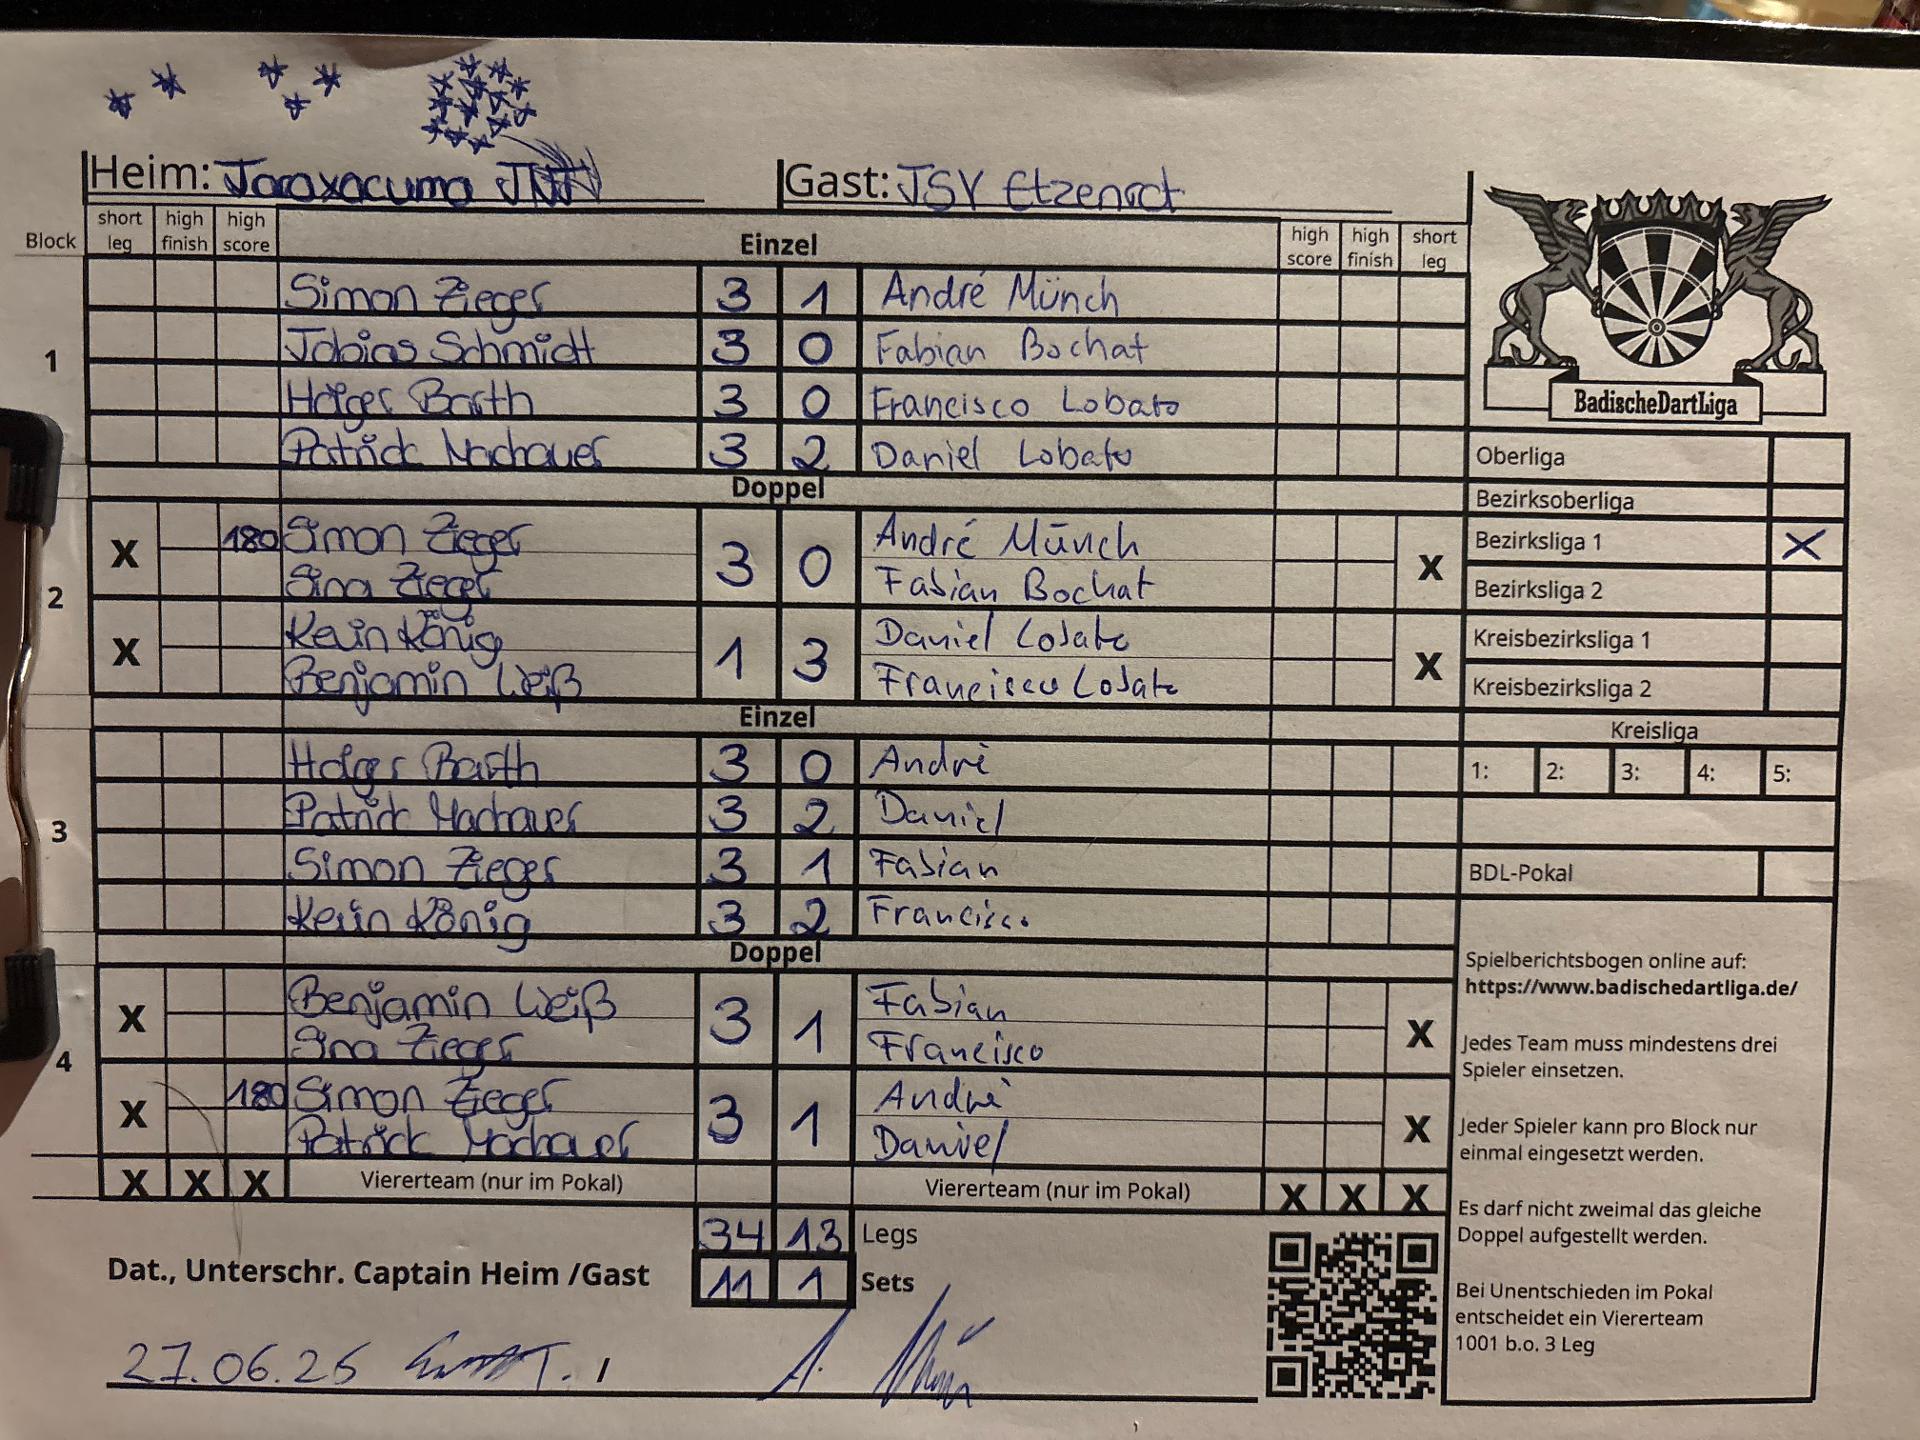 Heim: Taraxacuma Gast: TSV Etzenrot
Block short leg high finish high score Einzel high score high finish short leg
1
Simon Zieger 3 1 André Münch
Tobias Schmidt 3 0 Fabian Bochat
Holger Barth 3 0 Francisco Lobato
Patrick Machauer 3 2 Daniel Lobato
Doppel
2
X 180 Simon Zieger 3 0 André Münch X
Sina Zieger Fabian Bochat
X Kevin König 1 3 Daniel Lobato X
Benjamin Weiß Francisco Lobato
Einzel
3
Holger Barth 3 0 André
Patrick Machauer 3 2 Daniel
Simon Zieger 3 1 Fabian
Kevin König 3 2 Francisco
Doppel
4
X Benjamin Weiß 3 1 Fabian X
Sina Zieger Francisco
X 180 Simon Zieger 3 1 André X
Patrick Machauer Daniel
X X X Viererteam (nur im Pokal) Viererteam (nur im Pokal) X X X
34 13 Legs
Dat., Unterschr. Captain Heim /Gast 11 1 Sets
27.06.25
BadischeDartLiga
Oberliga
Bezirksoberliga
Bezirksliga 1 X
Bezirksliga 2
Kreisbezirksliga 1
Kreisbezirksliga 2
Kreisliga
1: 2: 3: 4: 5:
BDL-Pokal
Spielberichtsbogen online auf:
https://www.badischedartliga.de/
Jedes Team muss mindestens drei
Spieler einsetzen.
Jeder Spieler kann pro Block nur
einmal eingesetzt werden.
Es darf nicht zweimal das gleiche
Doppel aufgestellt werden.
Bei Unentschieden im Pokal
entscheidet ein Viererteam
1001 b.o. 3 Leg